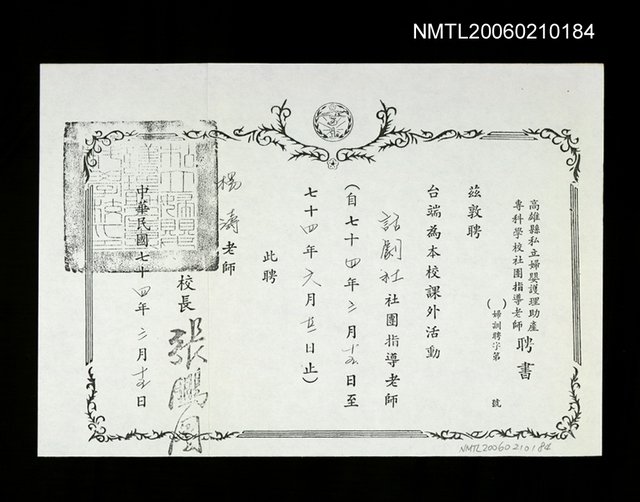 NMTL20060210184
高雄縣私立婦嬰護理助產
專科學校社團指導老師聘書
( )婦訓聘字第 號
茲敦聘
台端為本校課外活動
話劇社社團指導老師
(自七十四年三月十五日至
七十四年六月 日止)
此聘
楊濤老師
校長張鵬圖
中華民國七十四年三月十五日
NMTL20060210184